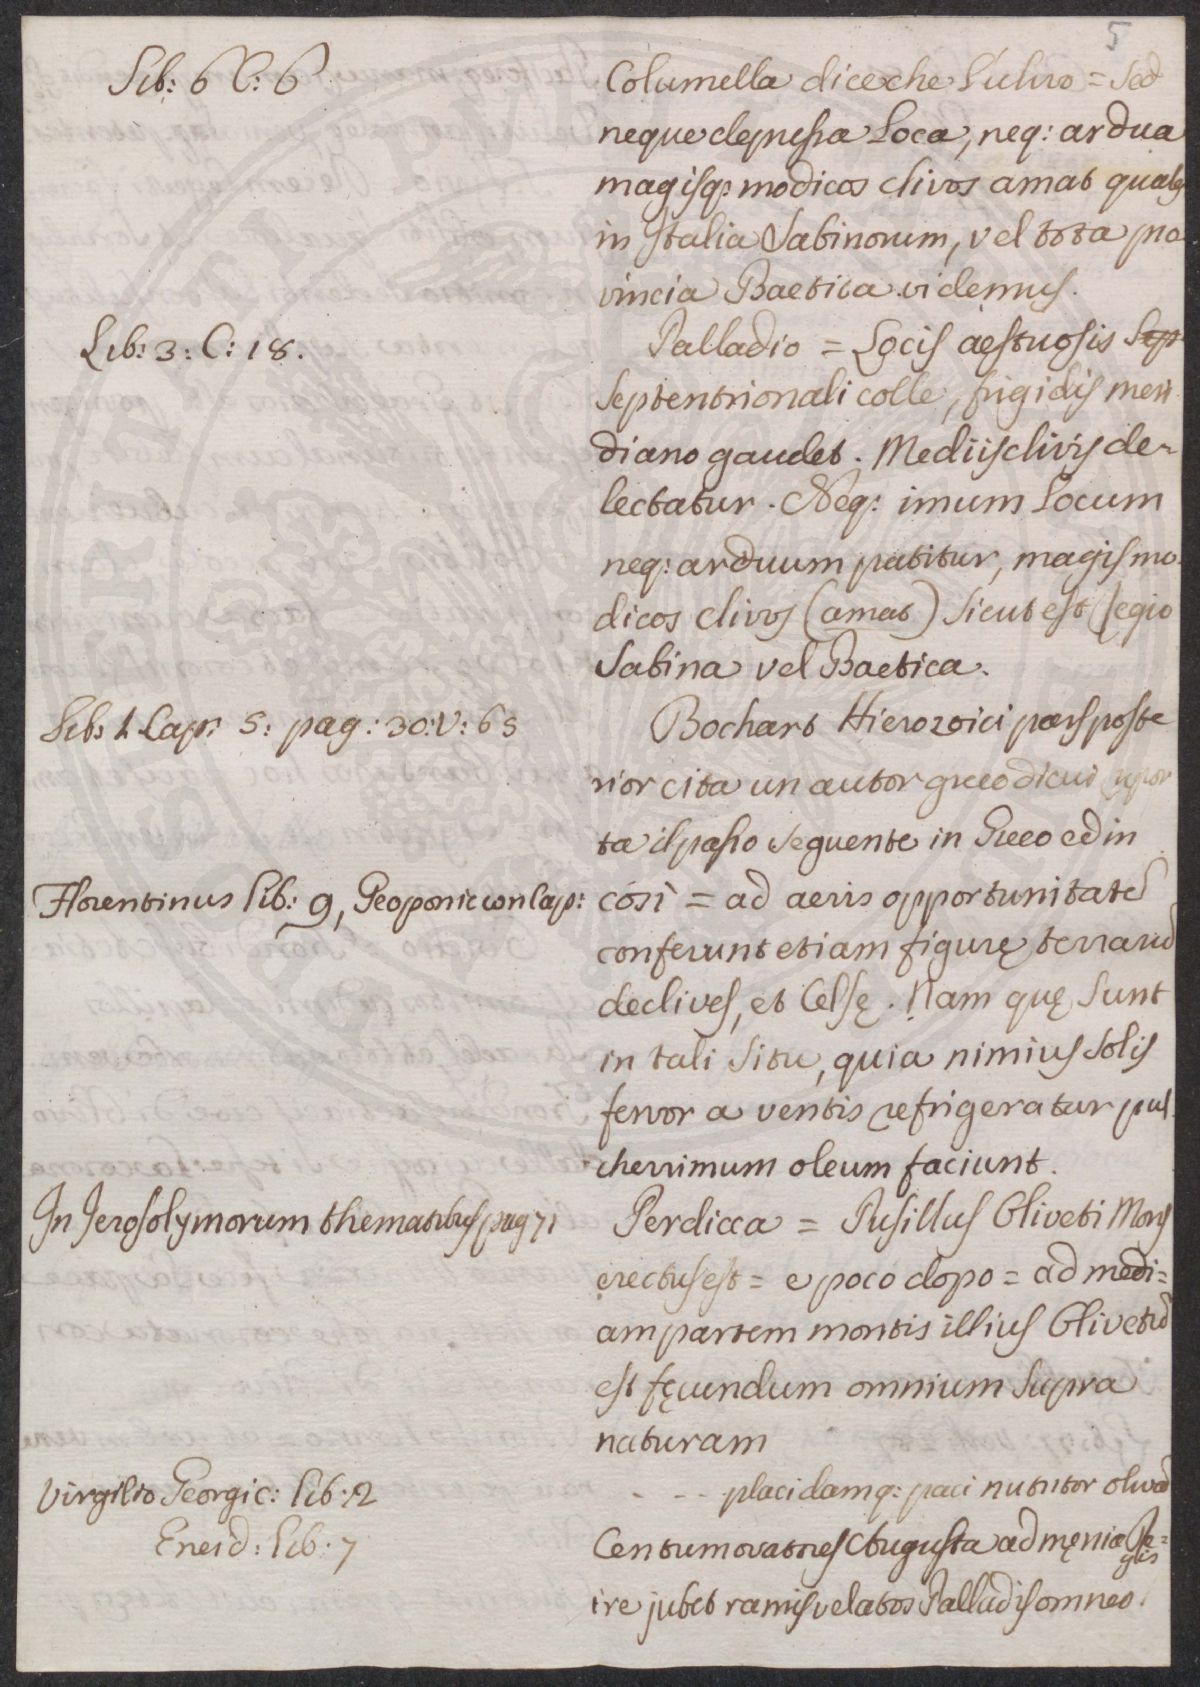 5
Lib: 6 C: 6
Columella dice che l'ulivo = Sed
neque depressa Loca, neq: ardua
magisq: modicos clivos amat quales
in Italia Sabinorum, vel tota pro
vincia Baetica videmus.
Lib: 3: C: 18.
Palladio = Locis aestuosis Sept
septentrionali colle, frigidis meri
diano gaudet. Mediis clivis de-
lectatur. Neq: imum Locum
neq: arduum patitur, magis mo
dicos clivos (amat) sicut est Regio
Sabina vel Baetica.
Lib: 1 Cap: 5: pag: 30: V: 65
Bochart Hierozoici pars poste
rior cita un autor greco di cui ripor
ta il passo seguente in Greco ed in
Florentinus Lib: 9, Geoponicωn Cap:
così = ad aeris opportunitatē
conferunt etiam figurę terrarū
declives, et Celsę. Nam quę sunt
in tali situ, quia nimius solis
fervor a ventis refrigeratur pul
cherrimum oleum faciunt.
In Jerosolymorum thematibus pag 71
Perdicca = Pusillus Oliveti Mons
erectus est = e poco dopo = ad medi=
am partem montis illius Olivetū
est fęcundum omnium supra
naturam
Virgilio Georgic: Lib: 2
- - - placidamq: paci nutritor olivā
Eneid: Lib: 7
Centum oratores Augusta ad męnia Re=
gis
ire jubet ramis velatos Palladis omnes.